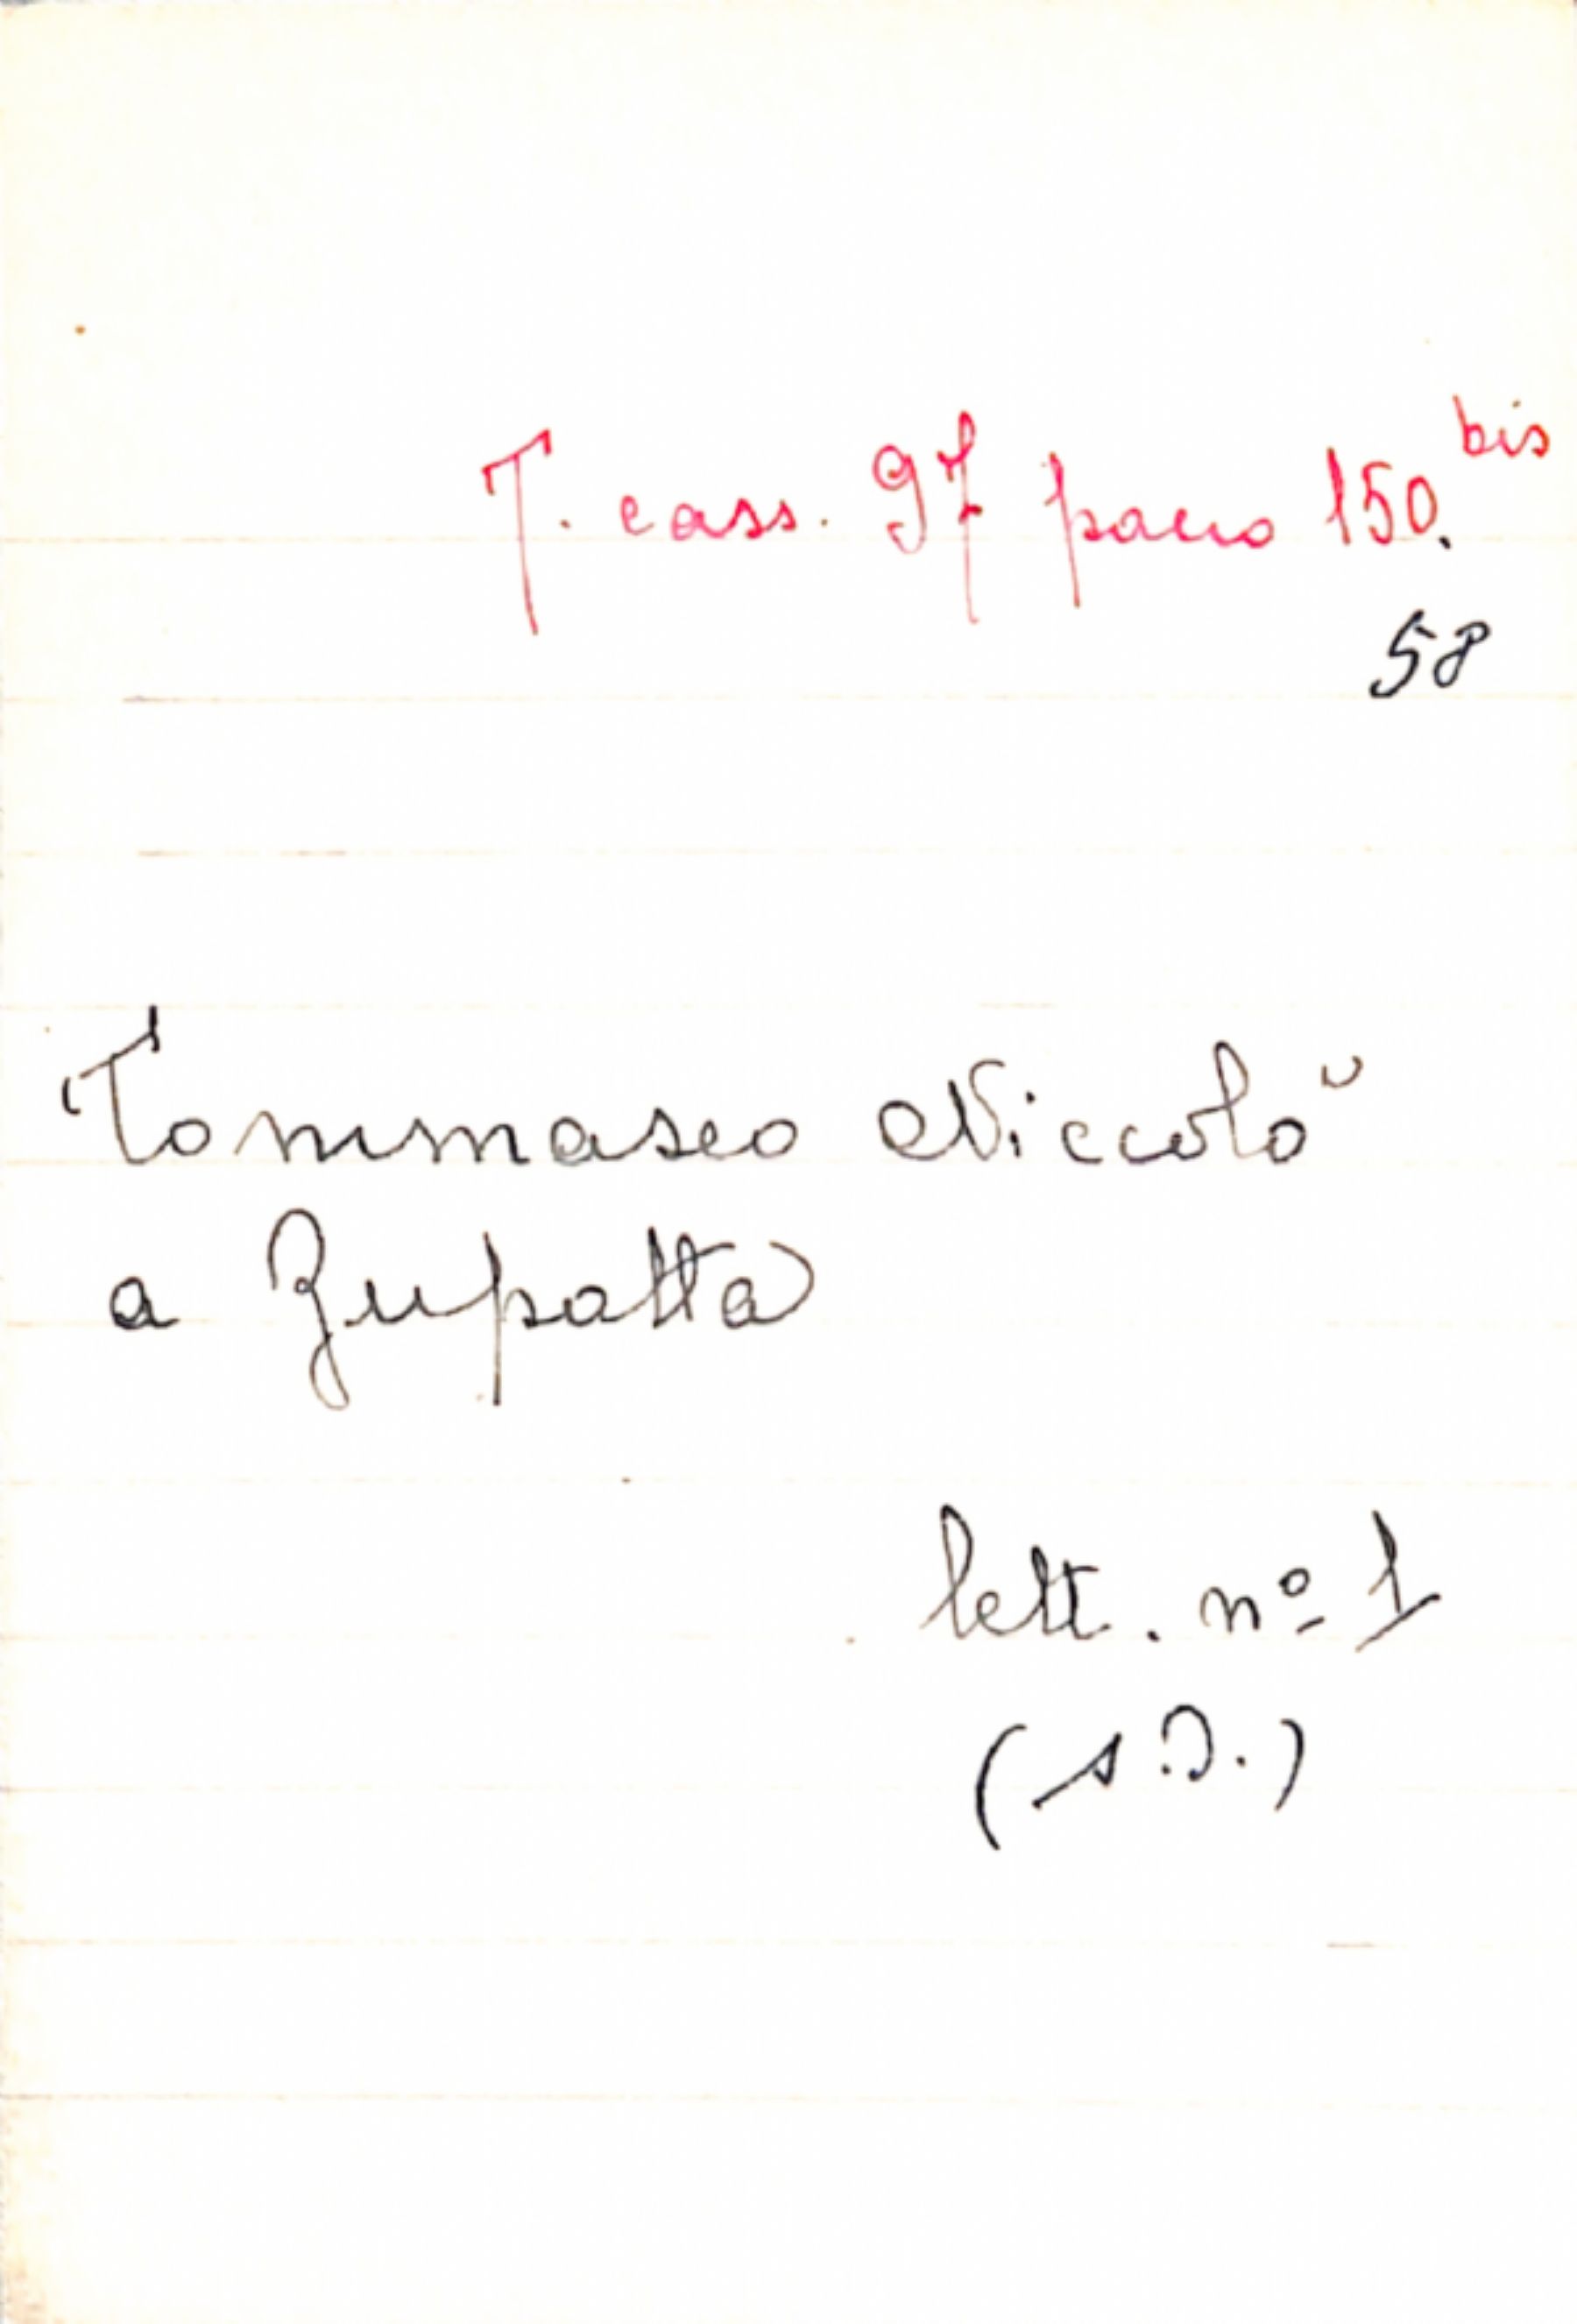 T. cass. 97 pacco 150. bis
58
Tommaseo Niccolò
a Zupatta
lett. nº 1
(s.d.)